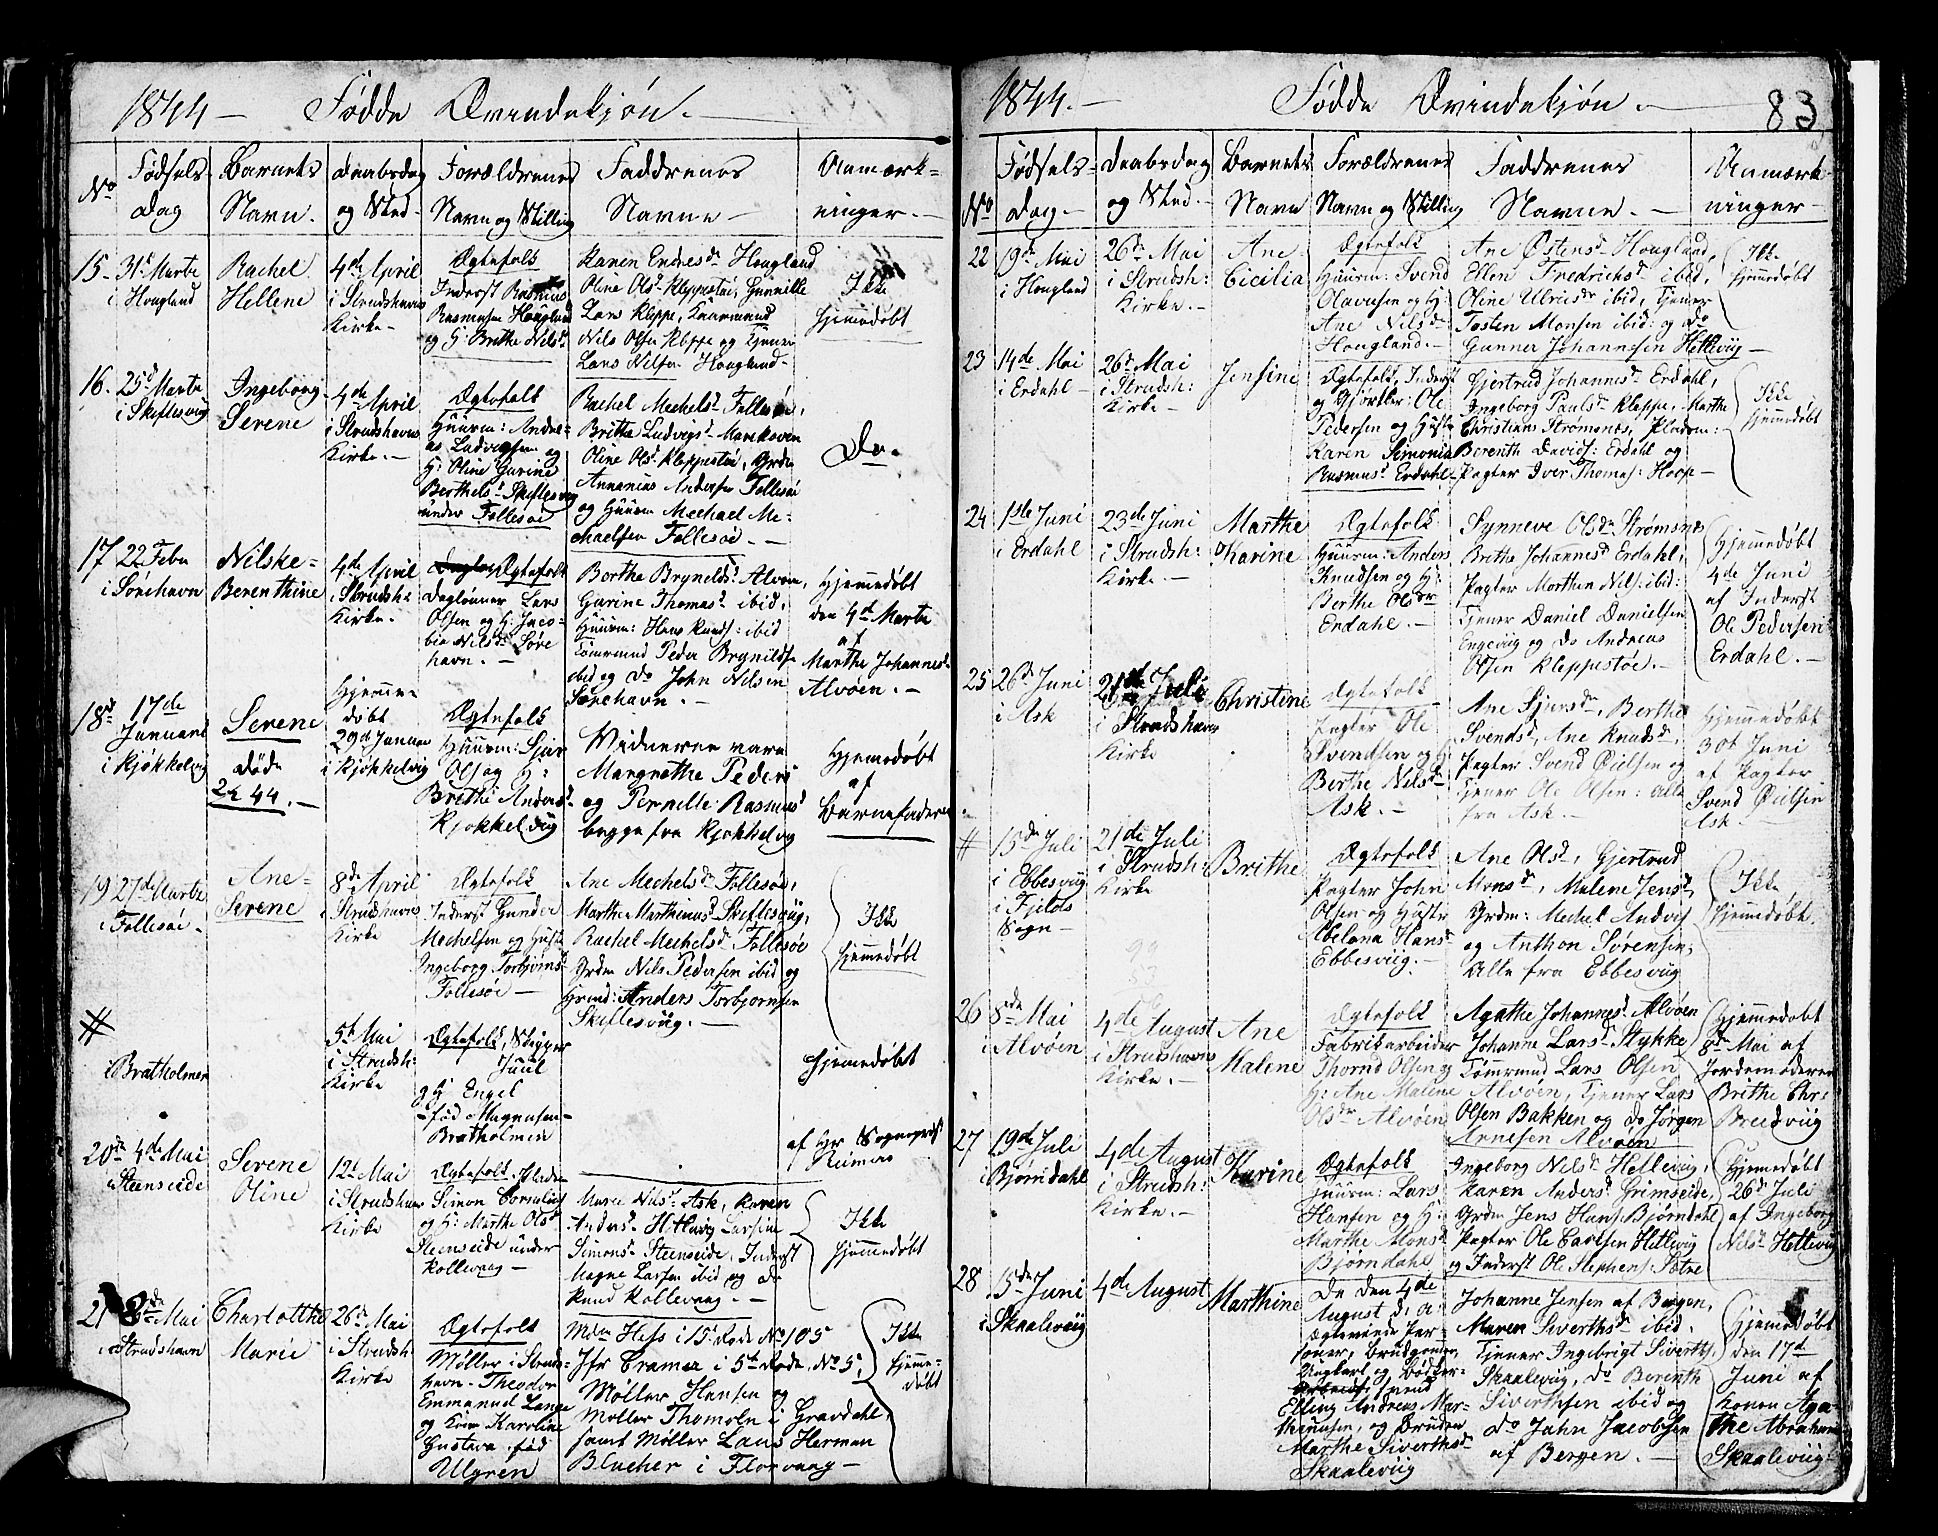 1844 — Fødde Qvindekjøn. —
No
Fødsels
Dag
Barnets
Navn.
Daabsdag
og Sted.
Forældrenes
Navn og Stilling
Faddrenes
Navne —
Anmærk=
ninger. —
15.
31t Marts
i Hougland
Rachel
Hellene
4de April
i Strudshavns
Kirke —
Ægtefolk
Inderst Rasmus
Rasmusen Hougland
og H: Brithe Nilsd.
Karen Endresd. Hougland
Oline Olsd. Kleppestøe, Gunnille
Lars Kleppe, Kaarmand
Nils Olsen Kleppe og Tjener
Lars Nilsen Hougland —
Ikke
hjemmedøbt
16.
25d Marts
i Skiftesviig
Ingeborg
Serene
4de April
i Strudshavns
Kirke. —
Ægtefolk
Huurm: Andre=
as Ludvigsen og
H: Oline Gurine
Berthelsd. Skiftesviig
under Follesøe
Rachel Mechelsd. Follesøe,
Brithe Ludvigsd.
Oline Olsd. Kleppestøe, Grdm
Annanias Andersen Follesøe
og Huurm Mechael Me=
chaelsen Follesøe. —
Do.
17
22 Febr
i Sørehavn
Nilske=
Berenthine
4de April
i Strudsh:
Kirke.
Ægtefolk
Daglønner Lars
Olsen og H: Jaco=
bia Nilsd. Søre
havn. —
Berthe Brynildsd. Alvøen,
Gurine Thomasd. ibid,
Huurm: Hans Knuds: ibid
Tømrmand Peder Brynilds.
ibid og Do John Nilsen
Sørehavn. —
Hjemmedøbt
den 4d Marts
af
Marthe Johannesd.
Alvøen. —
18
17de
Januari
i Kjøkkelviig
Serene
døde
44. —
Hjemme=
døbt
29d Januar
i Kjøkkelviig
Ægtefolk
Huurm: Sjur
Ols og H:
Brithe Andersd.
Kjøkkelviig
Vidnerne vare
Margrethe Peders
og Pernille Rasmusd
begge fra Kjøkkelviig
Hjemmedøbt
af
Barnefaderen
19
27de Marts
i Follesøe —
Ane=
Serene
8de April
i Strudshavns
Kirke
Ægtefolk
Inderst Gunder
Mechelsen og Hust:
Ingeborg Torbjørnsd.
Follesøe —
Ane Mechelsd. Follesøe,
Marthe Marthinusd. Skiftesviig,
Rachel Mechelsd. Follesøe
Grdm Nils Pedersen ibid og
Grmd: Anders Torbjørnsen
Skiftesviig. —
Ikke
hjemmedøbt
#
i Bratholmen
5t Mai
i Strudsh:
Kirke
Ægtefolk, Skipper
Juul
og H: Engel
— fød Magnusen —
Bratholmen
Hjemmedøbt
af Hr Sognepræst
20
4de Mai
i Steenseide
Serene
Oline
12t Mai
i Strudshavns
Kirke
Ægtefolk.
Simon Cornelius
og H: Marthe Olsd
Steenseide under
Kollevaag —
Maren Nilsd. Ask, Karen
Andersd. Hetleviig
Simonsd. Steenseide, Inderst
Mogne Larsen ibid og Do
Knud Kollevaag. —
Ikke
hjemmedøbt
21
2de Mai
i Strudshavn
Charlotthe
Marie
26t Mai
i Strudsh:
Kirke
Ægtefolk
Møller i Struds=
havn — Theodor
Emmanuel Lange
og Kone Karoline
Gustava fød
Ulgren
Mdm Hess i 15. Rode No 105
Jfr Cramer i 5te Rode, No 5,
Møller Hansen og
Møller Thomsen i Gravdahl,
samt Møller Laus Herman
Blucher i Florvaag —
Ikke
hjemme=
døbt
1844. — Fødde Qvindekjøn. — 83
No
Fødsels=
Dag. —
Daabsdag
og Sted. —
Barnets
Navn
Forældrenes
Navn og Stilling
Faddrenes
Navne. —
Anmærk=
ninger —
22
19de Mai
i Hougland
26de Mai
i Strudsh:
Kirke. —
Ane
Cicilia
Ægtefolk
Huurm: Svend
Olavesen og H:
Ane Nilsd.
Hougland. —
Ane Østensd. Hougland,
Ellen Fredrichsd. ibid,
Oline Ulricsdr ibid, Tjener
Tosten Monsen ibid: og Do
Gunner Johannesen Hetleviig —
Ikke
hjemmedøbt
23
14de Mai
i Erdahl —
26de Mai
i Strudsh:
Kirke —
Jensine
Ægtefolk, Inderst
og Gjørtler: Ole
Pedersen og Hustr
Karen Simonia
Rasmusd. Erdahl —
Gjertrud Johannesd. Erdahl,
Ingeborg Paulsd. Kleppe, Marthe
Christians Strømsnes, Pladsm:
Berenth Davids: Erdahl og
Pagter Iver Thomas: Hoop —
Ikke
hjemmedøbt
24
1ste Juni
i Erdahl
23de Juni
i Strudsh:
Kirke. —
Marthe
Karine
Ægtefolk
Huurm: Anders
Knudsen og H:
Berthe Olsdr
Erdahl. —
Synneve Olsdr Strømsnes
Brithe Johannesd Erdahl,
Pagter Morthen Nils: ibid:
Tjener Daniel Danielsen
Engeviig og Do Andreas
Olsen Kleppestøe. —
Hjemmedøbt
4de Juni
af Inderst
Ole Pedersen
Erdahl. —
25
26de Juni
i Ask
21de Juli
i Strudshavns
Kirke
Christine
Ægtefolk
Pagter Ole
Svendsen og H:
Berthe Nilsd
Ask. —
Ane Sjursdr, Berthe
Svendsd, Ane Knudsd,
Pagter Svend Øielsen og
Tjener Ole Olsen: alle
fra Ask. —
Hjemmedøbt
30t Juni
af Pagter
Svend Øielsen
Ask. —
#
15de Juli
i Ebbesviig
i Fjelds
Sogn —
21de Juli
i Strudsh:
Kirke
Brithe
Ægtefolk
Pagter John
Olsen og Hustr
Abelona Hansd.
Ebbesviig. —
Ane Olsd., Gjertrud
Monsd., Malene Jensd,
Grdm: Mechel Andvis
og Anthon Sørensen,
Alle fra Ebbesviig
Ikke
hjemmedøbt.
26
8de Mai
i Alvøen
4de August
i Strudshavns
Kirke. —
Ane
Malene
Ægtefolk
Fabrikarbeider
Thornd Olsen og
H: Ane Malene
Olsdr Alvøen
Agathe Johannesd. Alvøen
Johanne Larsd. Stykke
Tømrmnd Lars Olsen
Alvøen, Tjener Lars
Olsen Bakken og Do Jørgen
Arnesen Alvøen
Hjemmedøbt
8de Mai af
Jordemoderen
Brithe Chr:
Breidviig
27
19de Juli
i Bjørndahl
4de August
i Strudsh:
Kirke. —
Karine
Ægtefolk
Huurm: Lars
Hansen og H:
Marthe Monsd
Bjørndahl
Ingeborg Nilsd. Hetleviig,
Karen Andersd. Grimseide,
Grdm Jens Hans: Bjørndahl
Pagter Ole Carlsen Hetleviig
og Inderst Ole Stephens: Sætre
Hjemmedøbt
26d Juli
af Ingeborg
Nilsd. Hetleviig
28
15de Juni
i Skaaleviig
4de August
Marthine
De den 4de
August d: A:
ægteviede Per=
soner, Brudgommen
Ungkarl og Bødker=
Elling Andreas Mar=
thinusen, og Bruden
Marthe Siverthsd.
Skaaleviig
Johanne Jensen af Bergen,
Maren Siverthsd ibid.
Tjener Ingebrigt Siverths.
Skaaleviig, Do Berenth
Siverthsen ibid og
Do John Jacobsen
af Bergen. —
Hjemmedøbt
den 17d
Juni af
Konen Aga=
the Abraham
Skaaleviig —